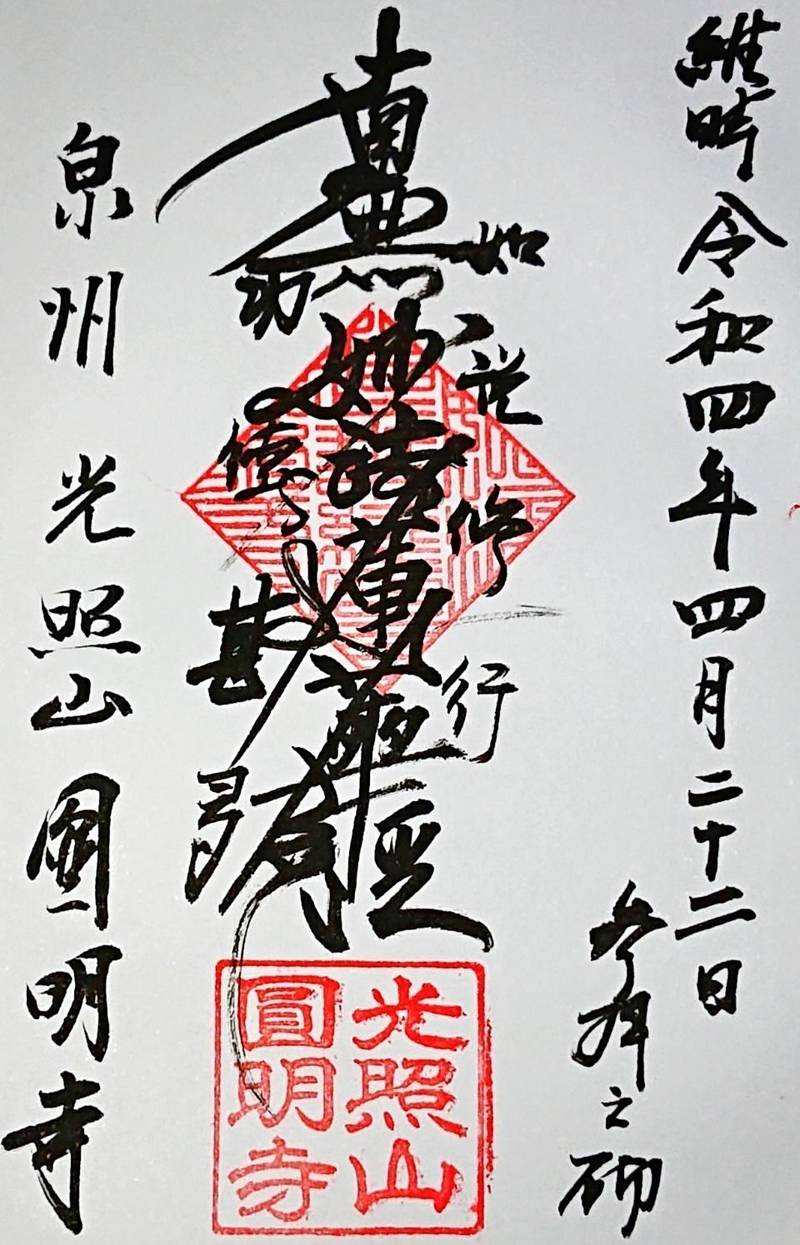 維時 令和四年四月二十二日
参拝之砌
如説修行
南無妙法蓮華経
功徳甚多
泉州 光照山 圓明寺
光照山
圓明寺